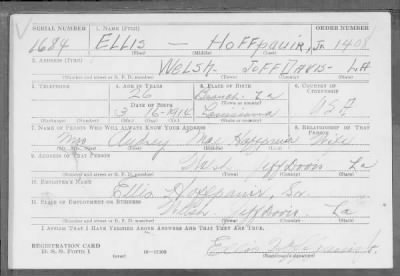 SERIAL NUMBER 1. NAME (Print) ORDER NUMBER
1684 ELLIS — HOFFPAUIR, JR 1408
(First) (Middle) (Last)
2. ADDRESS (Print)
WELSH JEFF DAVIS - LA
(Number and street or R. F. D. number) (Town) (County) (State)
3. TELEPHONE 4. AGE IN YEARS 5. PLACE OF BIRTH 6. COUNTRY OF CITIZENSHIP
26 Branch - La
(Town or county)
DATE OF BIRTH
3 16-1914 Louisiana USA
(Mo.) (Day) (Yr.) (State or country)
7. NAME OF PERSON WHO WILL ALWAYS KNOW YOUR ADDRESS 8. RELATIONSHIP OF THAT PERSON
Mrs Aubry Mae Hoffpauir Wife
(Mr., Mrs., Miss) (First) (Middle) (Last)
9. ADDRESS OF THAT PERSON
Welsh Jeff Davis La
(Number and street or R. F. D. number) (Town) (County) (State)
10. EMPLOYER'S NAME
Ellis Hoffpauir, Sr.
11. PLACE OF EMPLOYMENT OR BUSINESS
Welsh Jeff Davis La
(Number and street or R. F. D. number) (Town) (County) (State)
I AFFIRM THAT I HAVE VERIFIED ABOVE ANSWERS AND THAT THEY ARE TRUE.
REGISTRATION CARD
D. S. S. Form 1 16-17105
(over) (Registrant's signature)